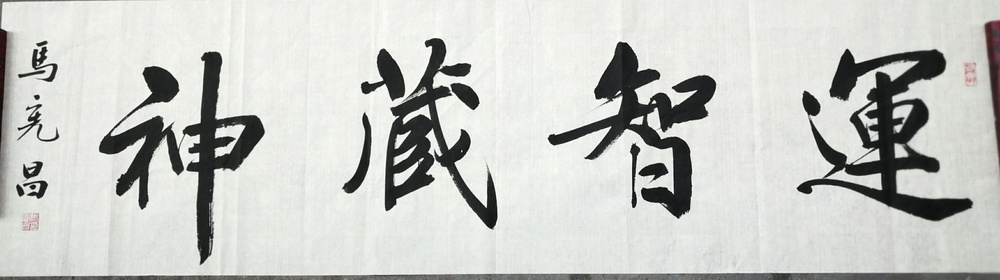 運智藏神
馬亮昌